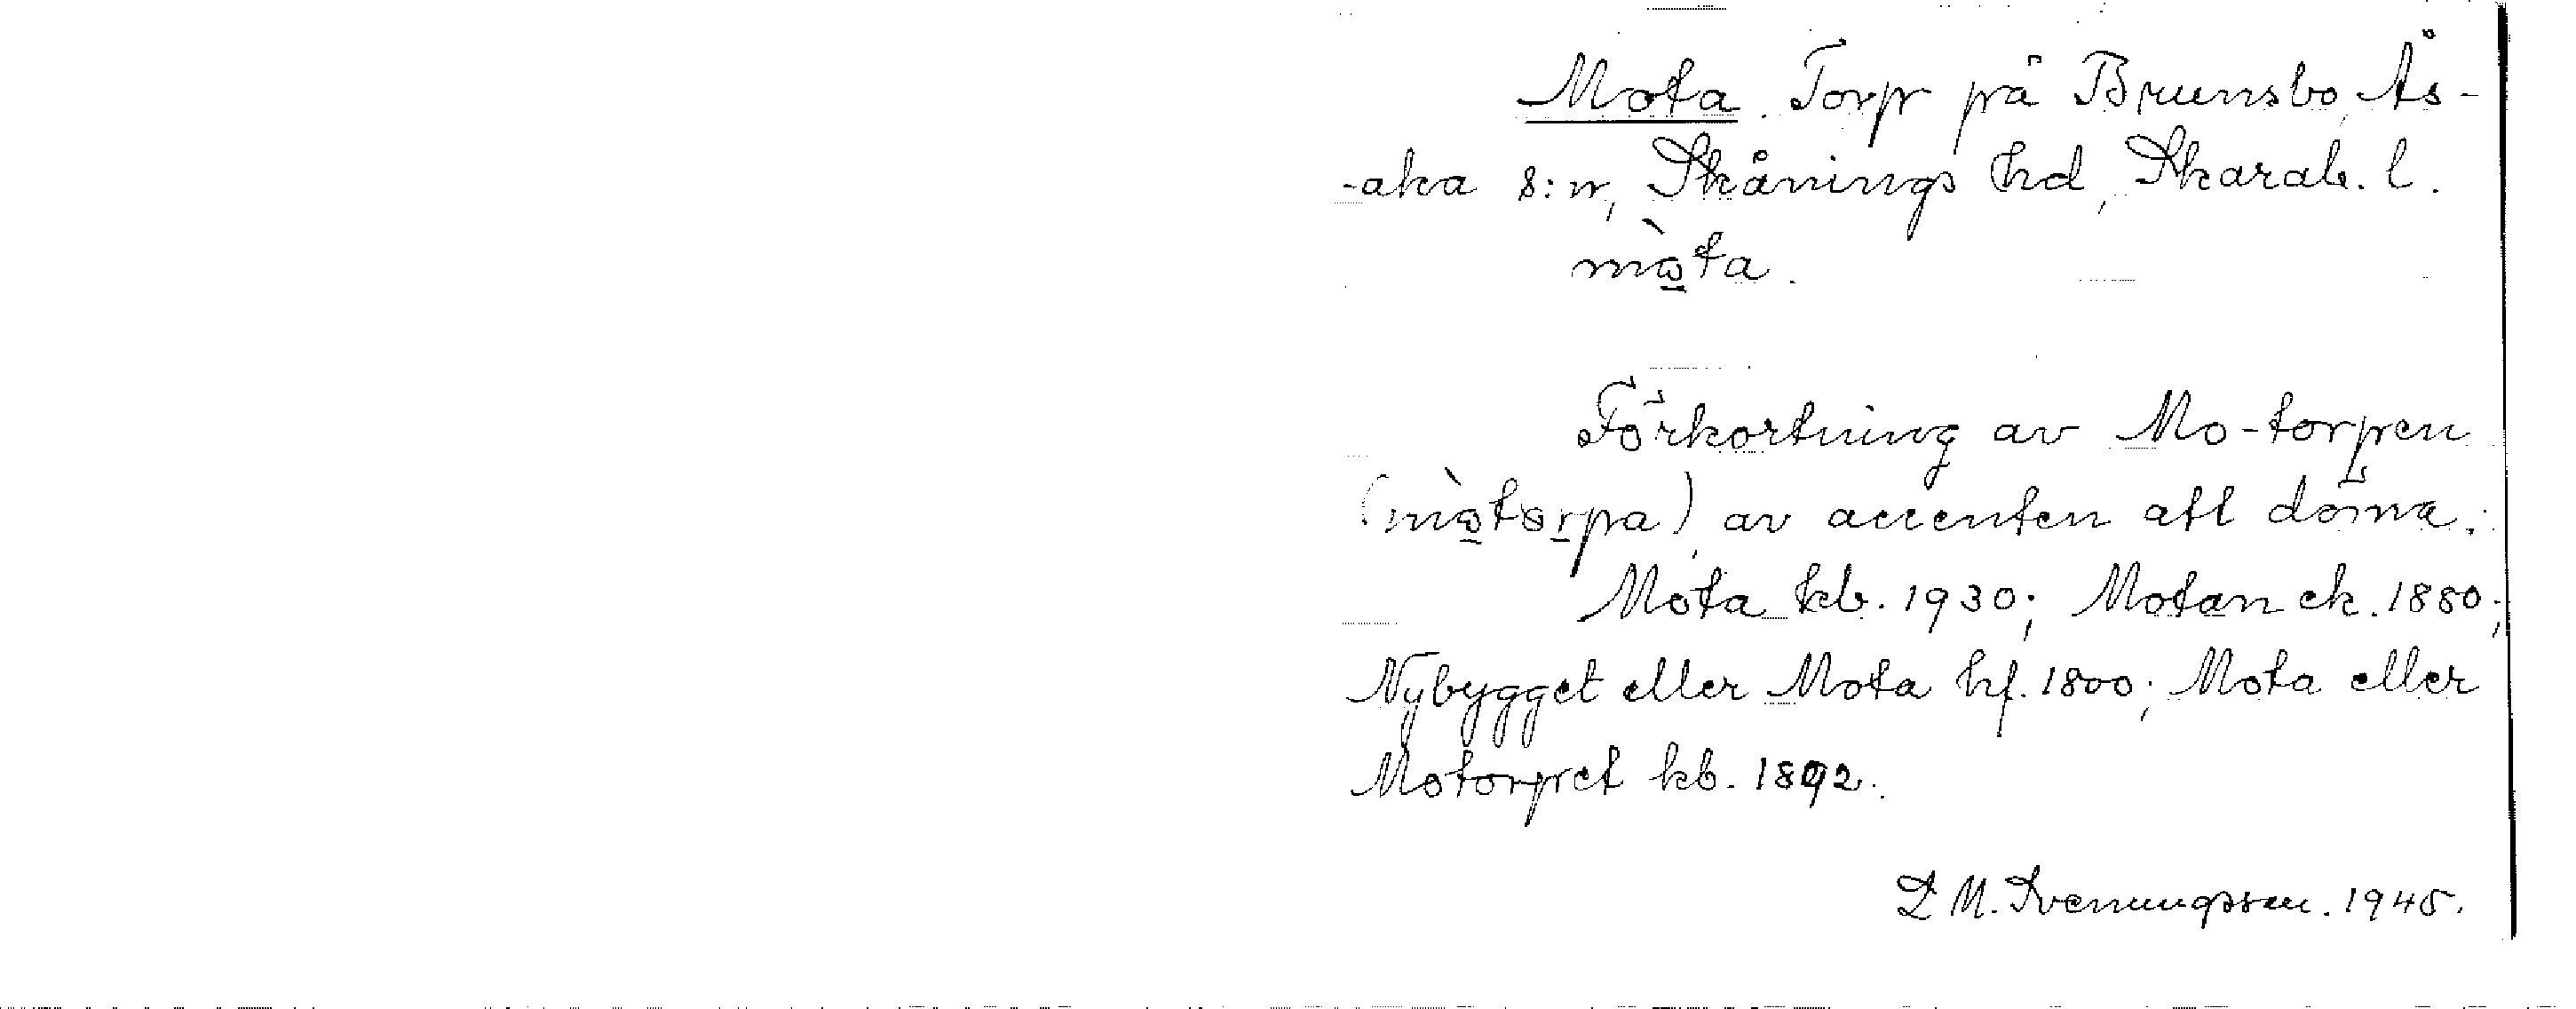 Mota. Torp på Brunsbo, Ås-
-aka s:n, Skånings hd, Skarab. l.
mò̱ta.
Förkortning av Mo-torpen
(mò̱torpa), av accenten att döma.
Mota kb. 1930; Motan ek. 1880;
Nybygget eller Mota hf. 1800; Mota eller
Motorpet kb. 1892.
D M. Svenungsson. 1945.